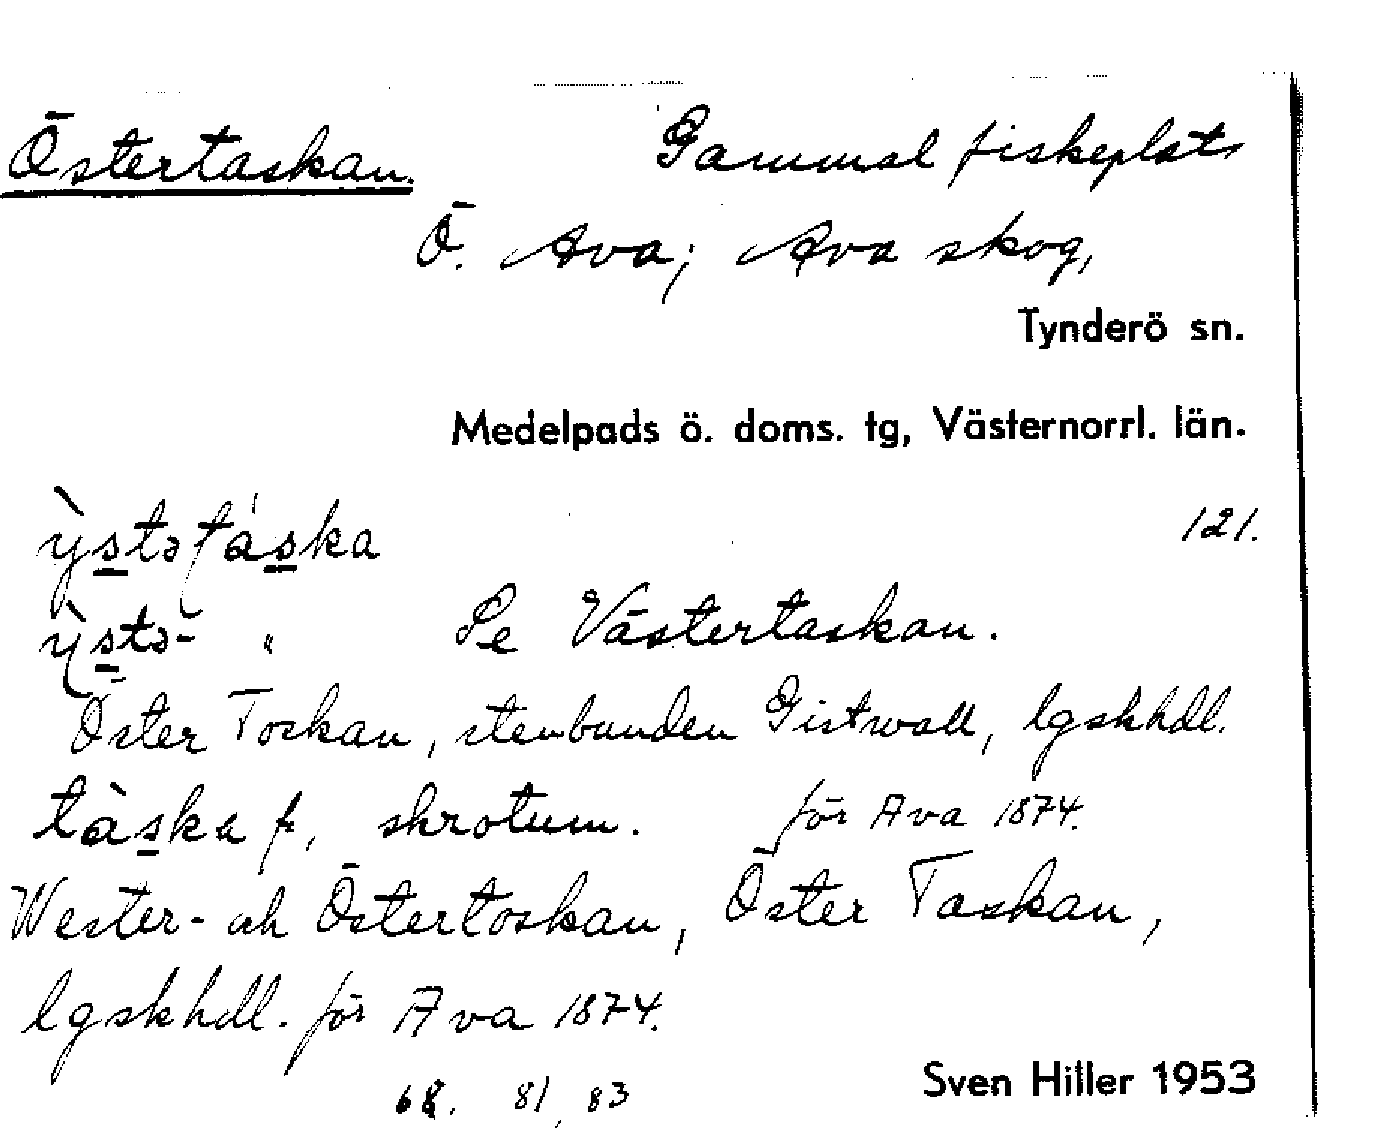 Östertaskan. Gammal fiskeplats
Ö. Ava; Ava skog,
Tynderö sn.
Medelpads ö. doms. tg, Västernorrl. län.
ỳstətáska 121.
ỳstə- " Se Västertaskan.
Öster Toskan, stenbunden Gistwall, lgskhdl.
tàska f, skrotum. för Ava 1874.
Wester- och Östertoskan, Öster Taskan,
lgskhdl. för Ava 1874.
68. 81, 83 Sven Hiller 1953